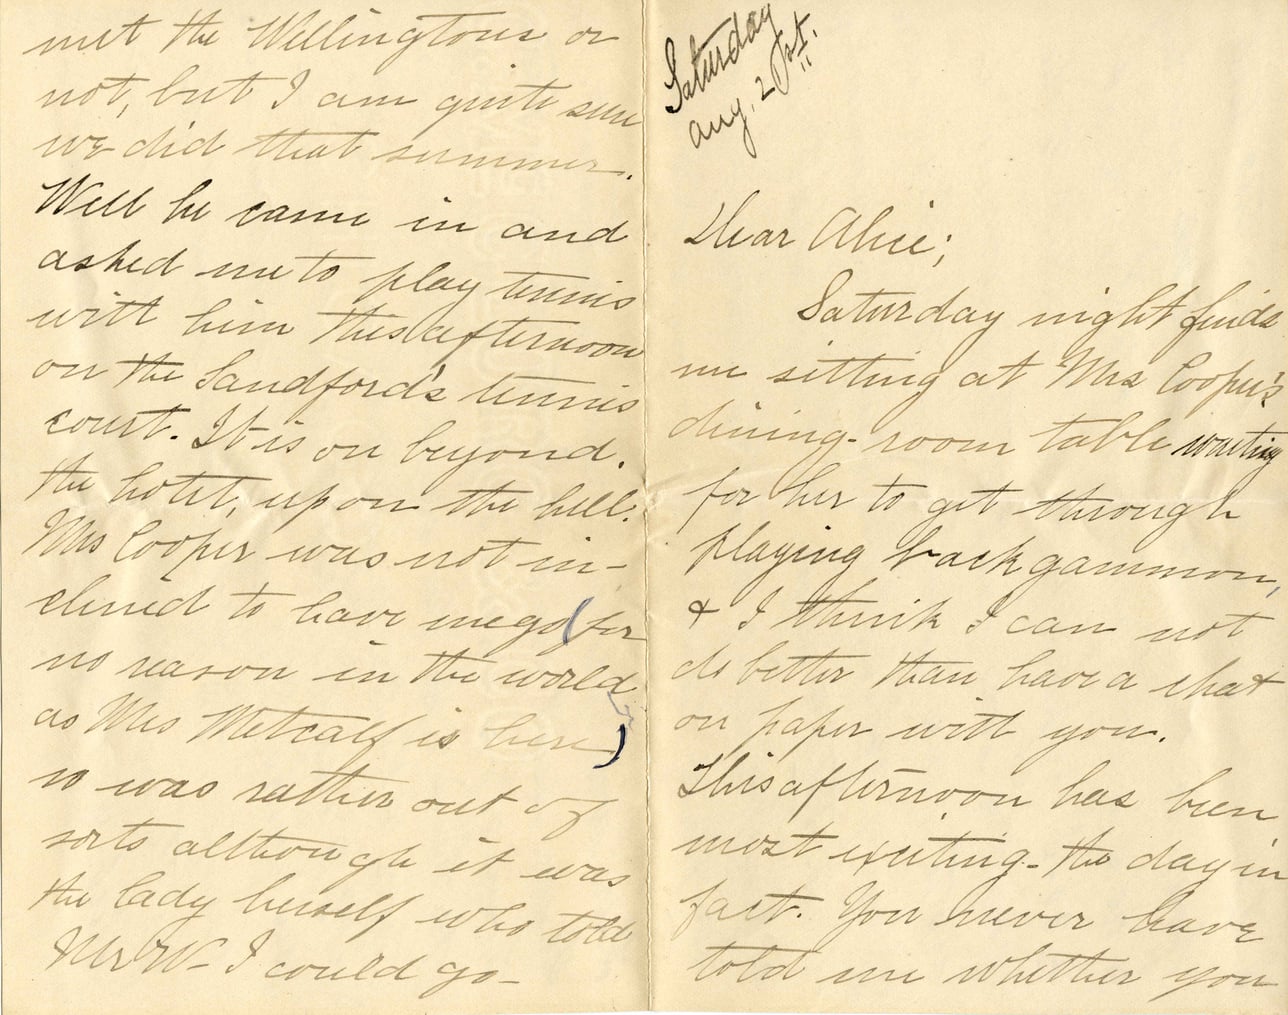 Saturday
Aug. 21st.
Dear Alice;
Saturday night finds
me sitting at Mrs Cooper's
dining-room table waiting
for her to get through
playing backgammon,
& I think I can not
do better than have a chat
on paper with you.
This afternoon has been
most exciting - the day in
fact. You never have
told me whether you
met the Wellingtons or
not, but I am quite sure
we did that summer.
Well he came in and
asked me to play tennis
with him this afternoon
on the Sandford's tennis
court. It is on beyond.
the hotel, up on the hill.
Mrs Cooper was not in-
clined to have me go (for
no reason in the world
as Mrs Metcalf is here)
so was rather out of
sorts although it was
the lady herself who told
Mr W- I could go-